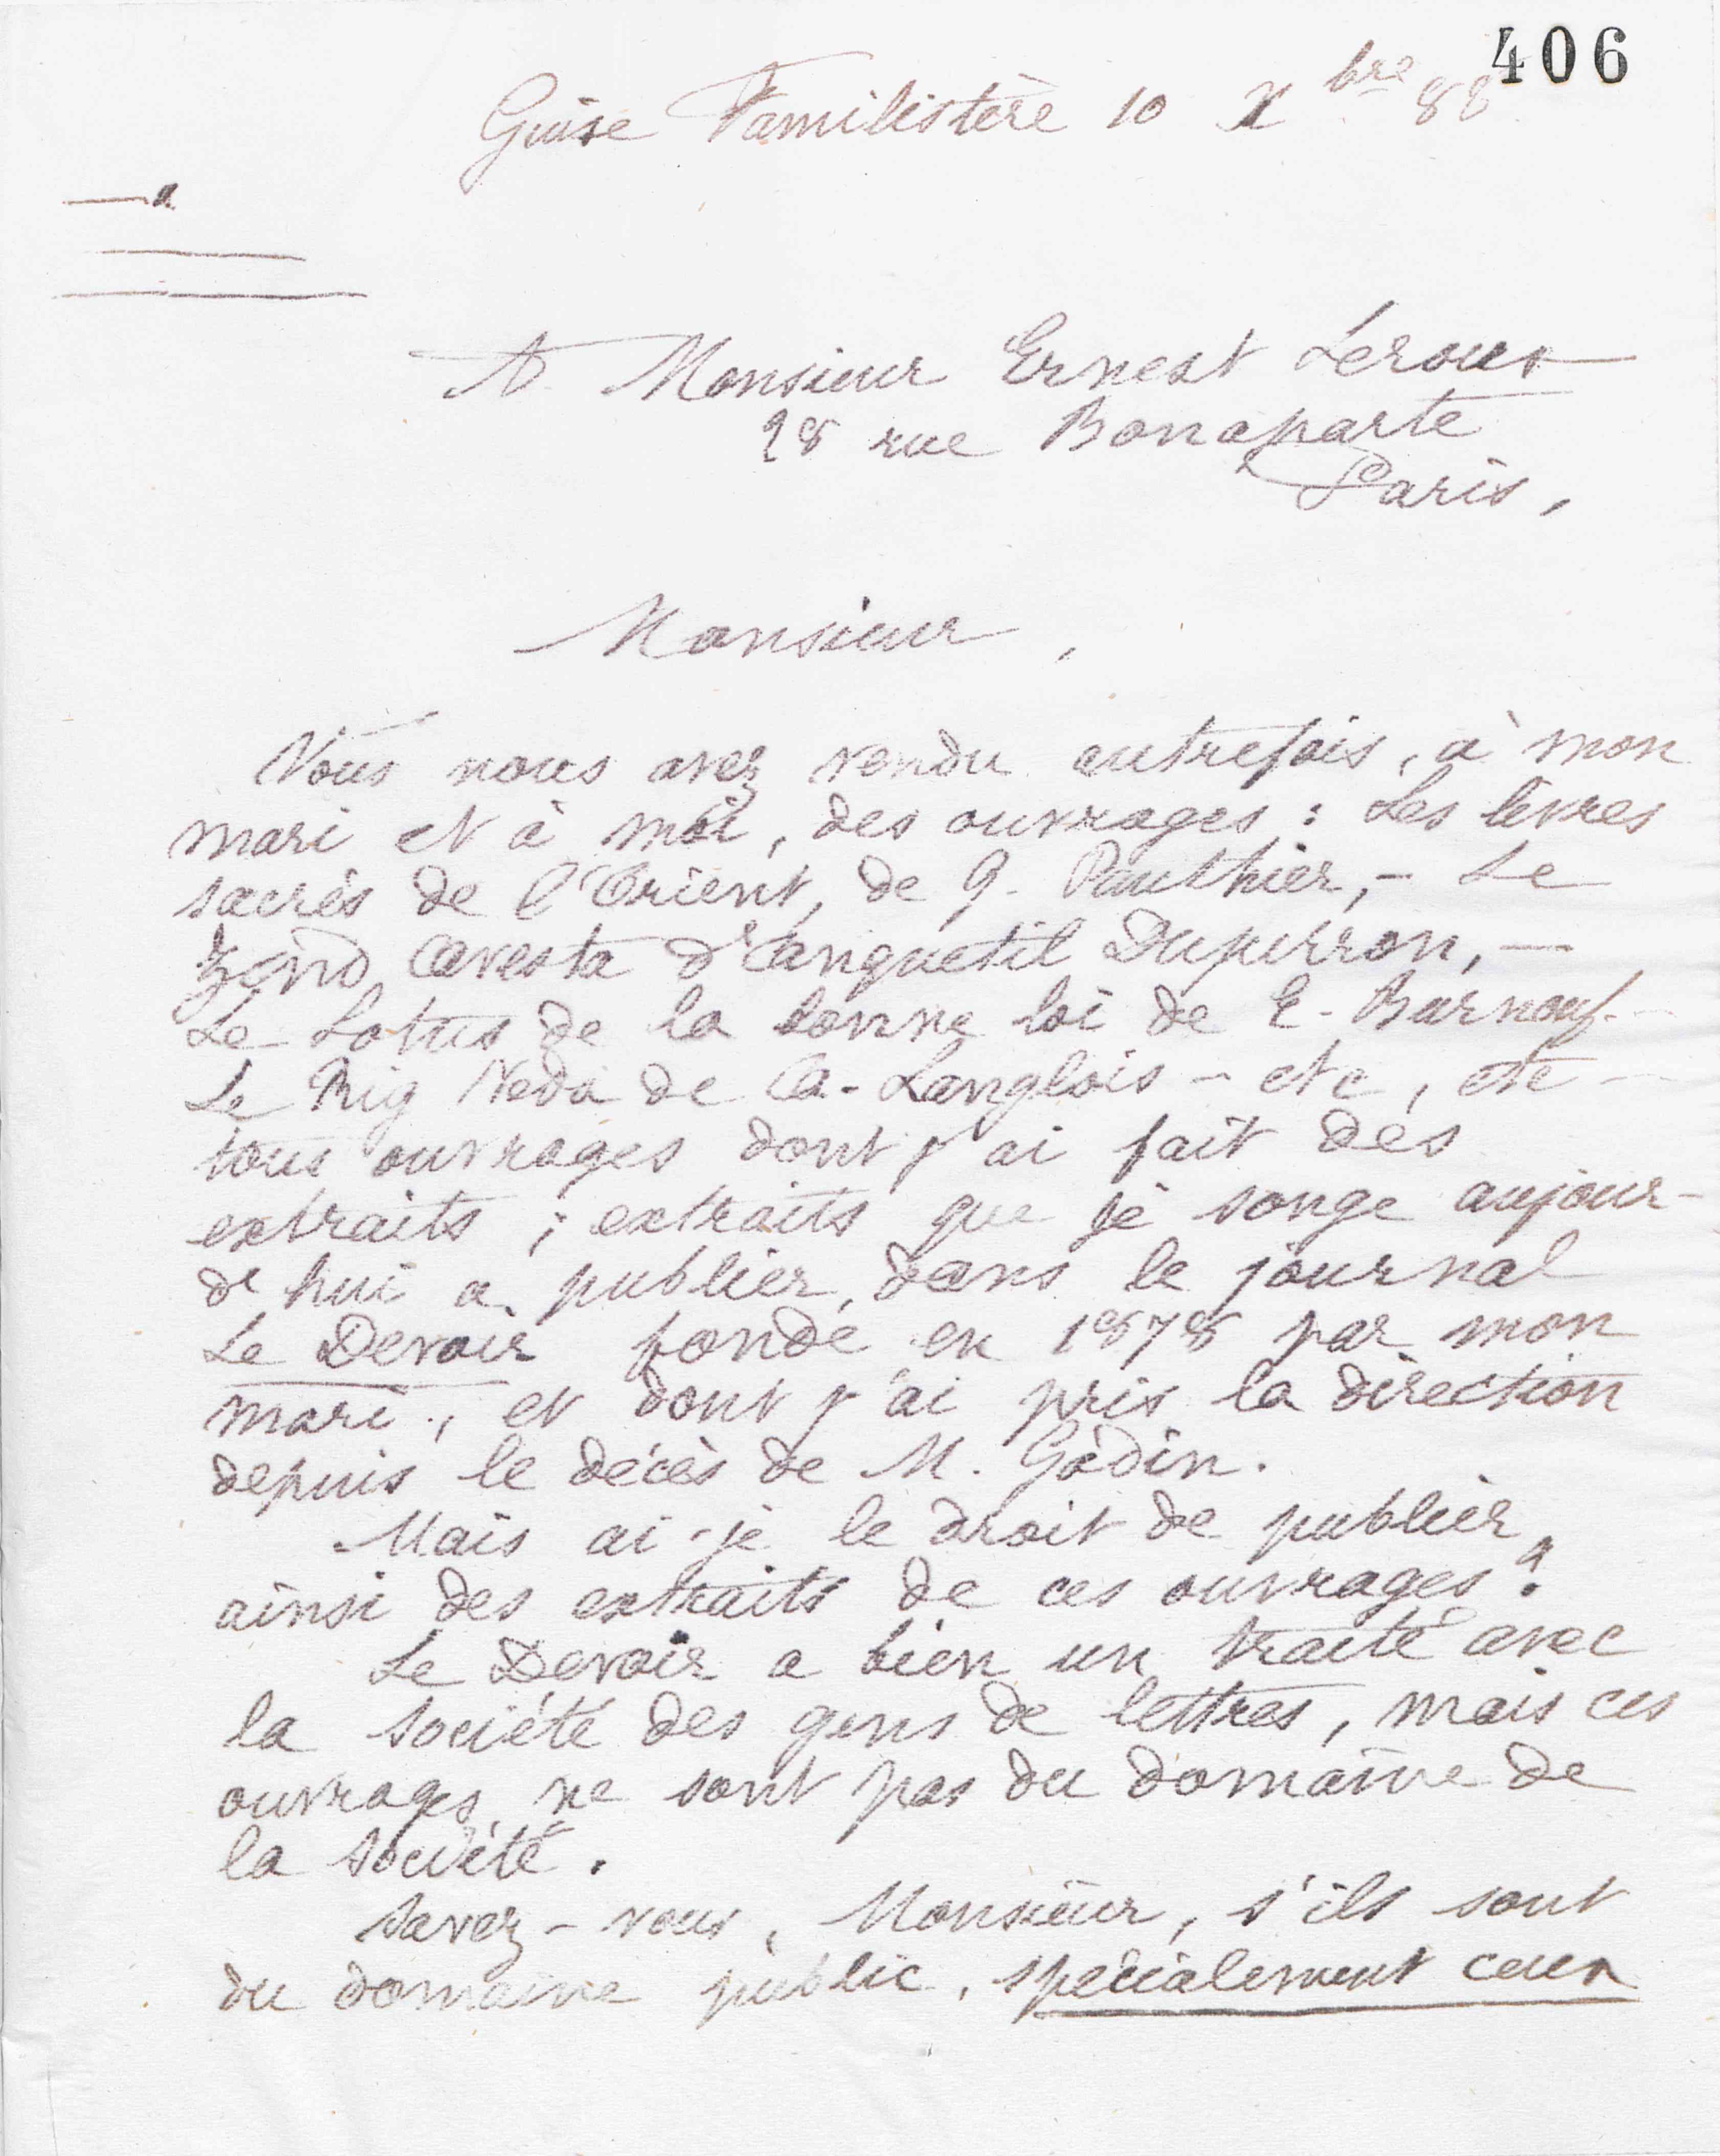 406
Guise Familistère 10 Xbre 88
A Monsieur Ernest Leroux
28 rue Bonaparte
Paris,
Monsieur,
Vous nous avez vendu autrefois, à mon
mari et à moi, des ouvrages : Les livres
sacrés de l'Orient, de G. Pauthier, - Le
Zend Avesta d'Anquetil Duperron, -
Le Lotus de la bonne loi de E. Burnouf -
Le Rig Veda de A. Langlois - etc, etc -
tous ouvrages dont j'ai fait des
extraits ; extraits que je songe aujour-
d'hui a publier, dans le journal
Le Devoir fondé en 1878 par mon
mari, et dont j'ai pris la direction
depuis le décès de M. Godin.
Mais ai-je le droit de publier
ainsi des extraits de ces ouvrages ?
Le Devoir a bien un traité avec
la société des gens de lettres, mais ces
ouvrages ne sont pas du domaine de
la Société.
Savez-vous, Monsieur, s'ils sont
du domaine public, spécialement ceux